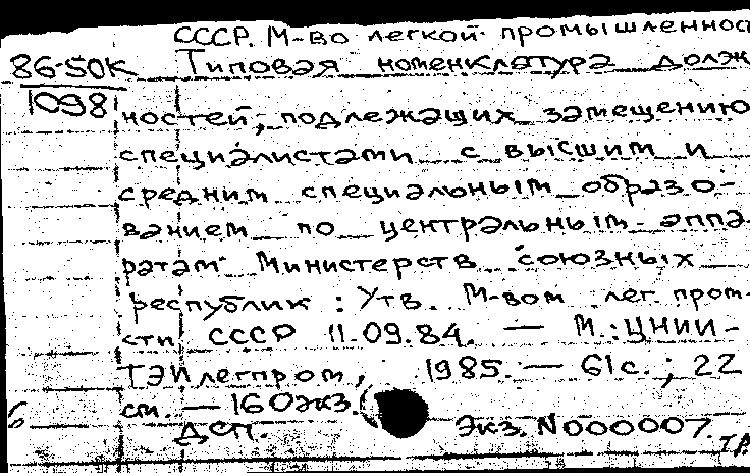 СССР. М-во легкой промышленнос
86-50К Типовая номенклатура долж
1098 ностей, подлежащих замещению
специалистами с высшим и
средним специальным образо-
ванием по центральным аппа-
ратам Министерств союзных
республик : Утв. М-вом лег. пром-
сти СССР 11.09.84. — М.: ЦНИИ-
ТЭИлегпром, 1985. — 61с.; 22
см. — 160экз.
ДСП. Экз. N000007.